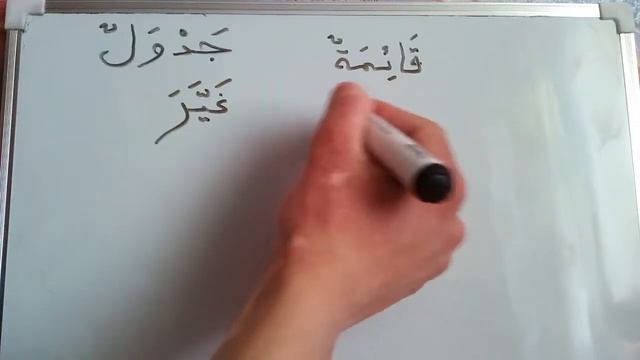 قَائِمَةٌ جَدْوَلٌ
غَيَّرَ